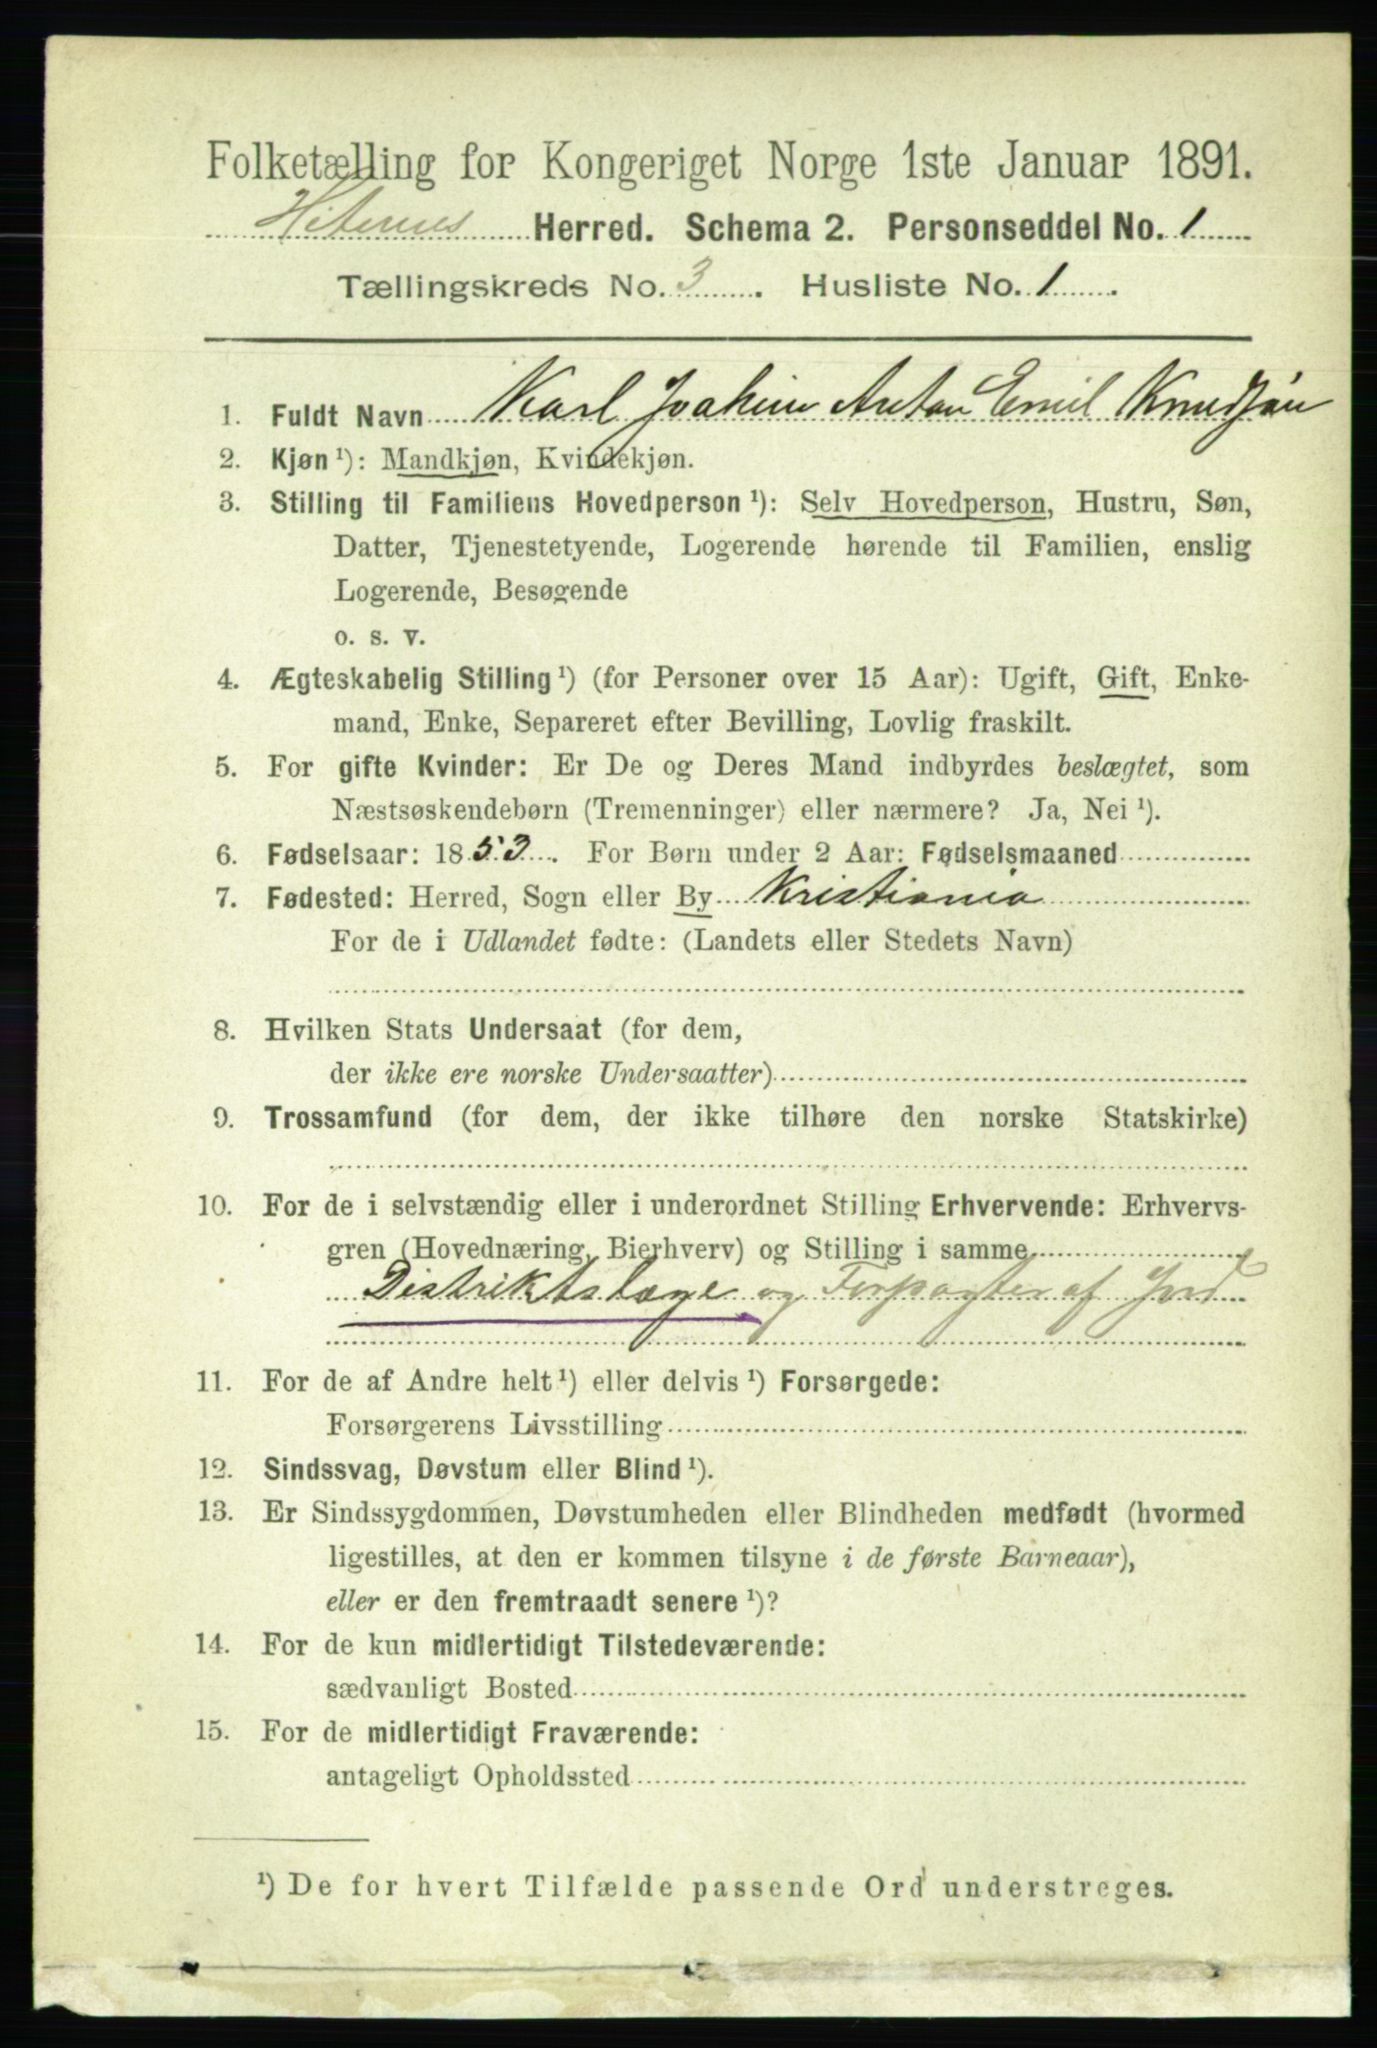 Folketælling for Kongeriget Norge 1ste Januar 1891.
Hiternes Herred. Schema 2. Personseddel No. 1
Tællingskreds No. 3. Husliste No. 1.
1. Fuldt Navn Karl Joakim Anton Emil Knudsøn
2. Kjøn ¹): Mandkjøn, Kvindekjøn.
3. Stilling til Familiens Hovedperson ¹): Selv Hovedperson, Hustru, Søn,
Datter, Tjenestetyende, Logerende hørende til Familien, enslig
Logerende, Besøgende
o. s. v.
4. Ægteskabelig Stilling ¹) (for Personer over 15 Aar): Ugift, Gift, Enke-
mand, Enke, Separeret efter Bevilling, Lovlig fraskilt.
5. For gifte Kvinder: Er De og Deres Mand indbyrdes beslægtet, som
Næstsøskendebørn (Tremenninger) eller nærmere? Ja, Nei ¹).
6. Fødselsaar: 1853. For Børn under 2 Aar: Fødselsmaaned
7. Fødested: Herred, Sogn eller By Kristiania
For de i Udlandet fødte: (Landets eller Stedets Navn)
8. Hvilken Stats Undersaat (for dem,
der ikke ere norske Undersaatter)
9. Trossamfund (for dem, der ikke tilhøre den norske Statskirke)
10. For de i selvstændig eller i underordnet Stilling Erhvervende: Erhvervs-
gren (Hovednæring, Bierhverv) og Stilling i samme
Distriktslæge og Forpagter af Jord
11. For de af Andre helt ¹) eller delvis ¹) Forsørgede:
Forsørgerens Livsstilling
12. Sindssvag, Døvstum eller Blind ¹).
13. Er Sindssygdommen, Døvstumheden eller Blindheden medfødt (hvormed
ligestilles, at den er kommen tilsyne i de første Barneaar),
eller er den fremtraadt senere ¹)?
14. For de kun midlertidigt Tilstedeværende:
sædvanligt Bosted
15. For de midlertidigt Fraværende:
antageligt Opholdssted
¹) De for hvert Tilfælde passende Ord understreges.